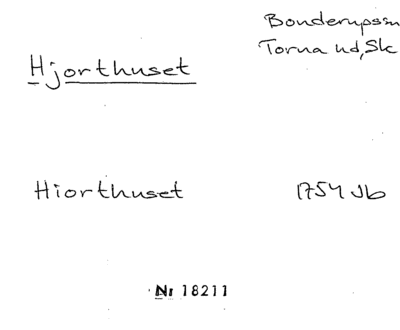 Bonderupssn
Torna hd, Sk
Hjorthuset
Hiorthuset 1754 Jb
Nr 18211